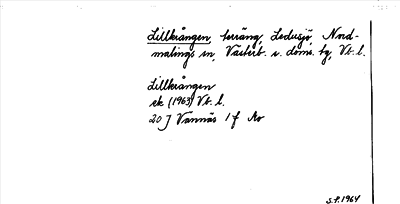 Lillkrången, terräng, Ledusjö, Nord-
malings sn, Västerb. v. doms. tg, Vb. l.
Lillkrången
ek (1963) Vb. l.
20 J Vännäs 1 f No
S.P. 1964